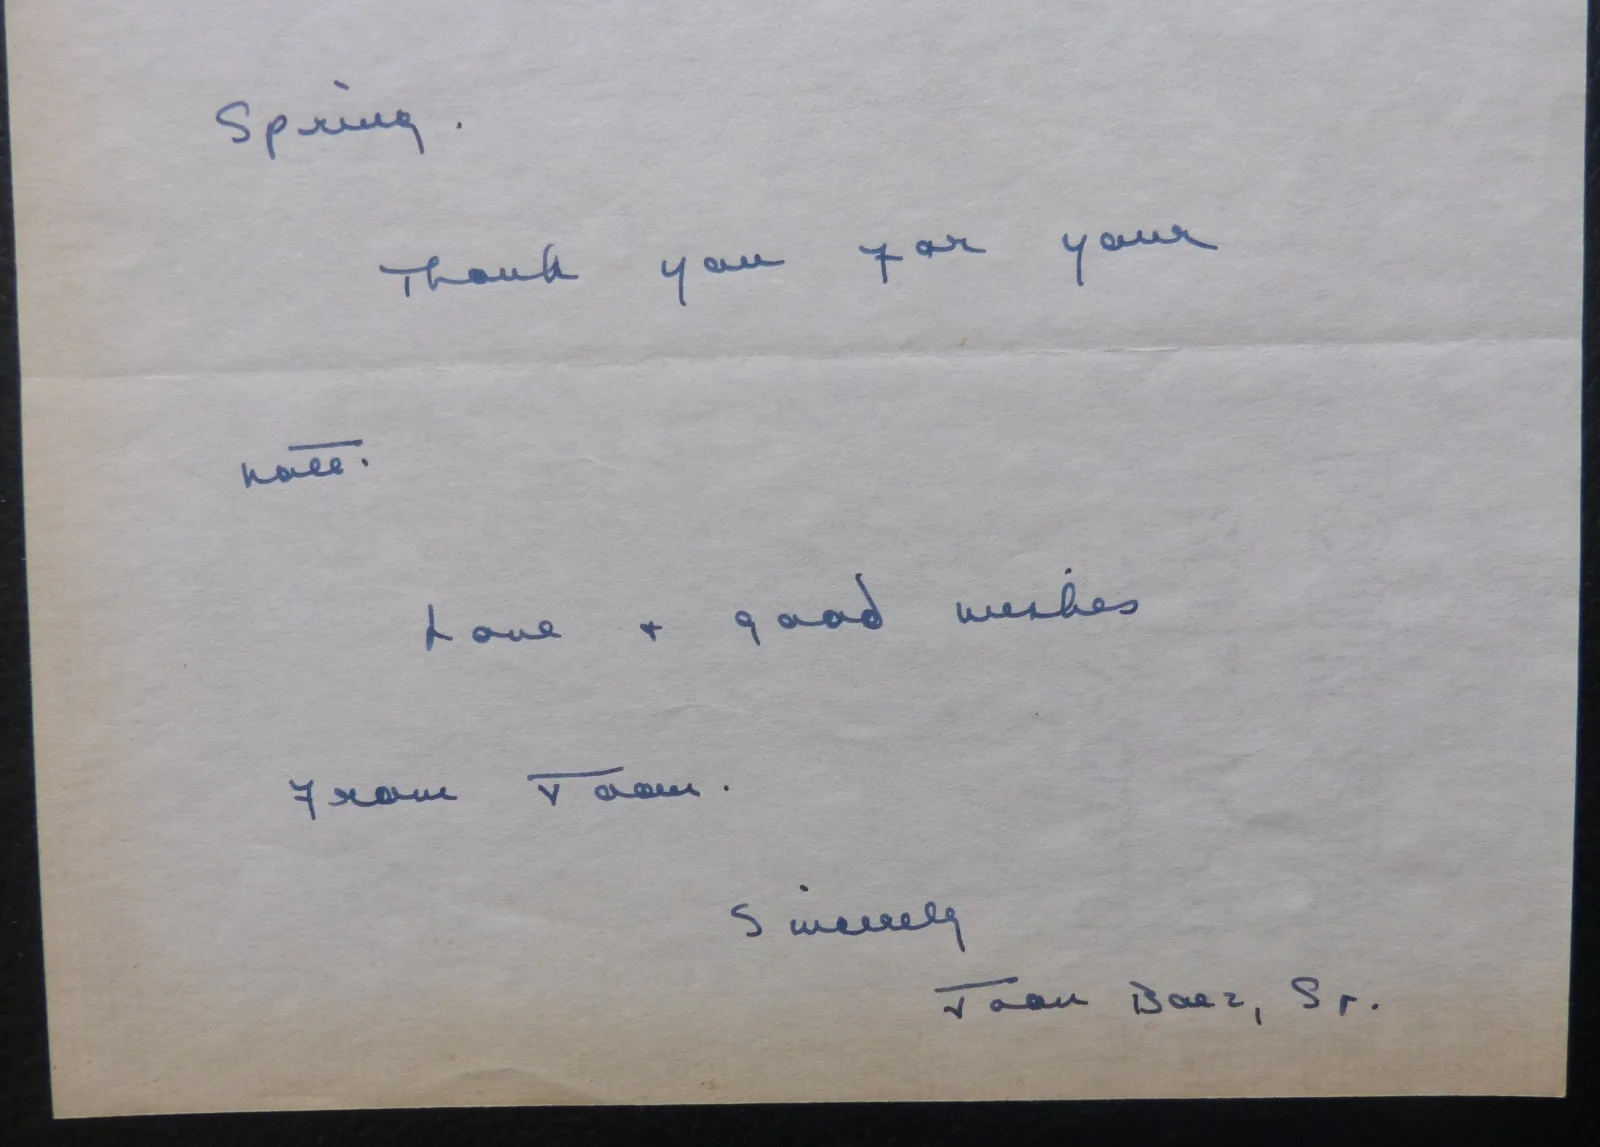 Spring.
Thank you for your
note.
Love + good wishes
From Joan.
Sincerely
Joan Baez, Sr.